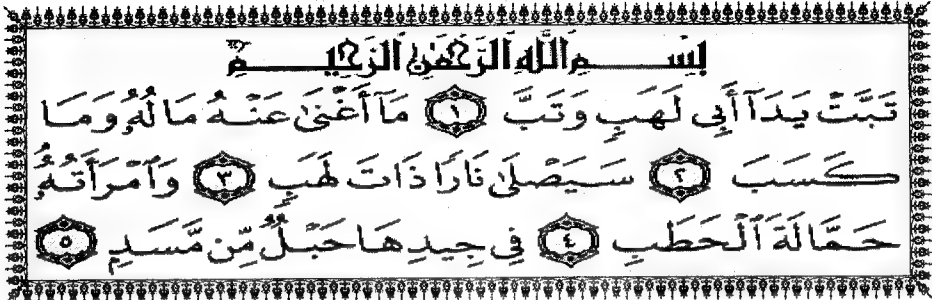 بِسْمِ اللَّهِ الرَّحْمَٰنِ الرَّحِيمِ
تَبَّتْ يَدَآ أَبِي لَهَبٍ وَتَبَّ ١ مَآ أَغْنَىٰ عَنْهُ مَالُهُۥ وَمَا
كَسَبَ ٢ سَيَصْلَىٰ نَارًا ذَاتَ لَهَبٍ ٣ وَٱمْرَأَتُهُۥ
حَمَّالَةَ ٱلْحَطَبِ ٤ فِي جِيدِهَا حَبْلٌ مِّن مَّسَدٍ ٥